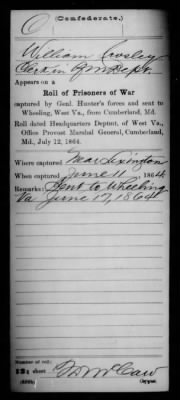 (Confederate.)
O
William Crosley
Clerk in Q.M. Dept.
Appears on a
Roll of Prisoners of War
captured by Genl. Hunter's forces and sent to
Wheeling, West Va., from Cumberland, Md.
Roll dated Headquarters Deptmt. of West Va.,
Office Provost Marshal General, Cumberland,
Md., July 12, 1864.
Where captured Near Lexington
When captured June 11, 1864
Remarks: Sent to Wheeling
Va June 17, 1864
Number of roll:
short
McCaw
Copyist.